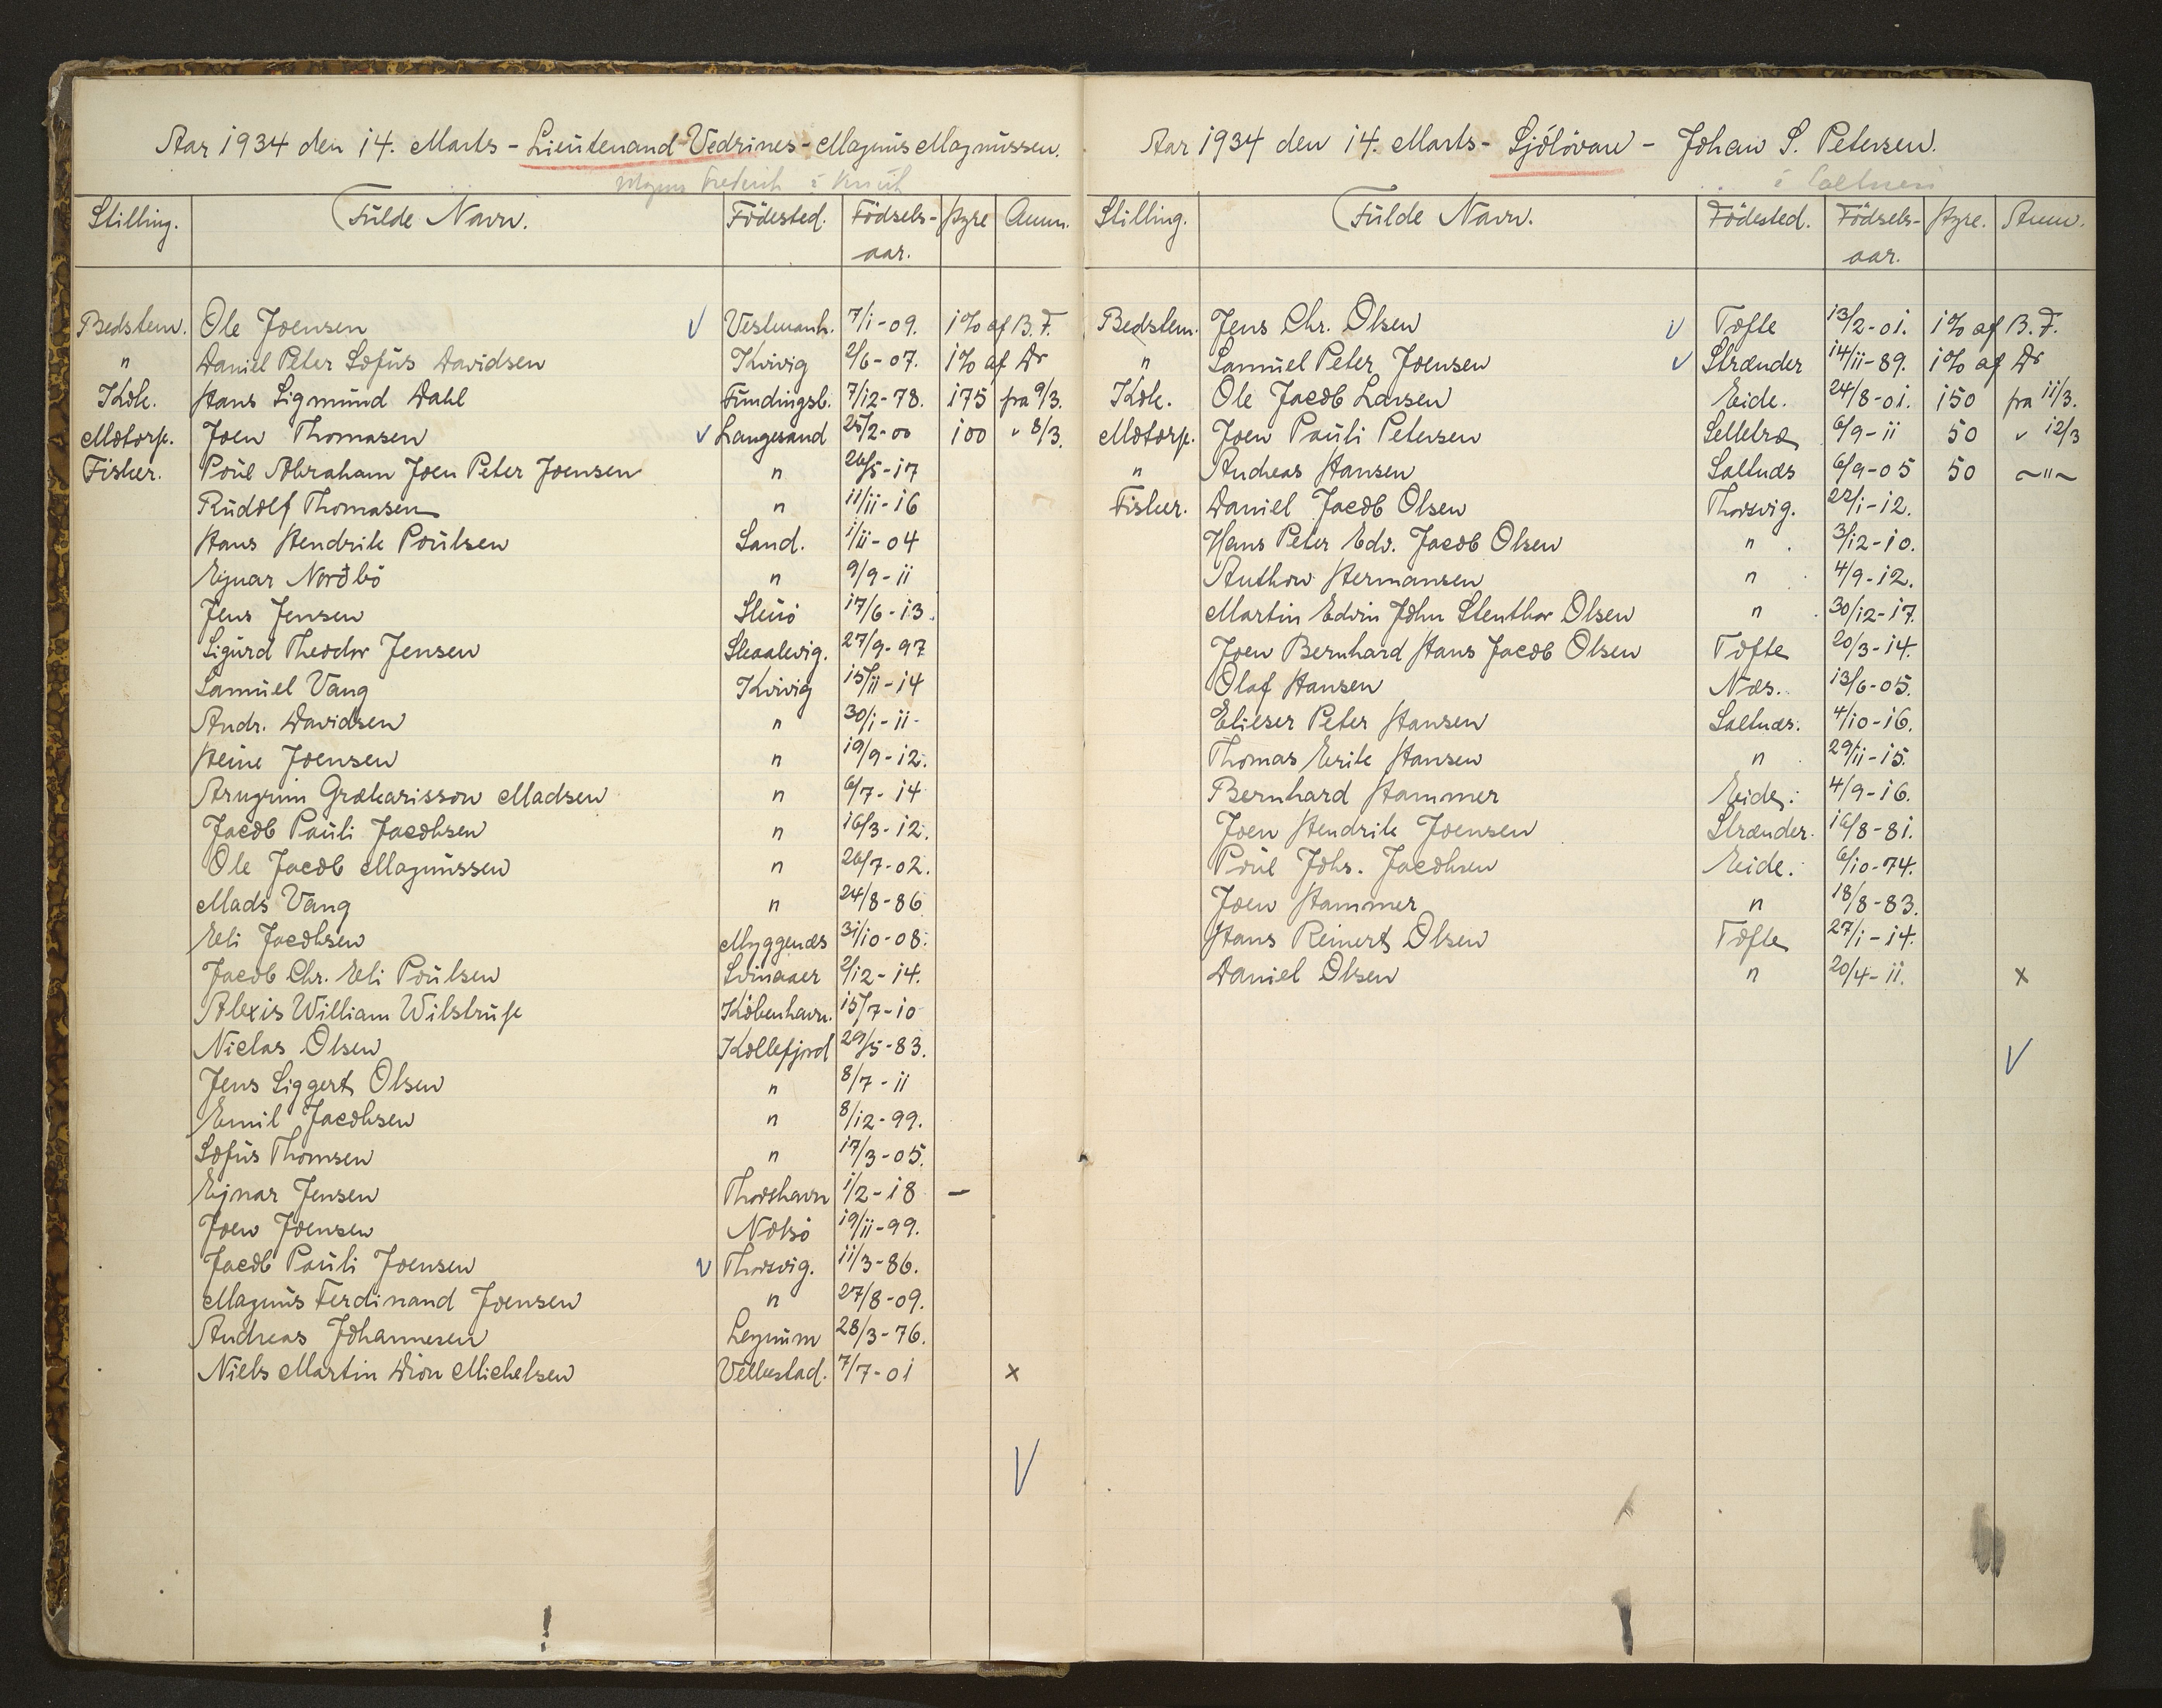 Aar 1934 den 14. Marts - Lieutenand Vedrines - Magnus Magnussen.
Stilling. Fulde Navn. Födested. Födsels-aar. Hyre Anm.
Bedstem. Ole Joensen V Vestmanh. 7/1-09. 1% af B.F.
" Daniel Peter Sofus Davidsen Kvivig 2/6-07. 1% af Do
Kok. Hans Sigmund Dahl Fundingsb. 7/12-78. 175 fra 9/3.
Motorp. Joen Thomasen V Langesand 25/2-00 100 " 8/3.
Fisker. Poul Abraham Joen Peter Joensen " 26/5-17
Rudolf Thomasen " 11/11-16
Hans Hendrik Poulsen Sand. 1/11-04
Ejnar Norðbö " 9/9-11
Jens Jensen Skuö 17/6-13.
Sigurd Theodor Jensen Skaalevig. 27/9-97
Samuel Vang Kvivig 15/11-14
Andr. Davidsen " 30/1-11-
Heine Joensen " 19/9-12.
Arngrim Grækarisson Madsen " 6/7-14
Jacob Pauli Jacobsen " 16/3-12.
Ole Jacob Magnussen " 26/7-02.
Mads Vang " 24/8-86
Eli Jacobsen Myggenæs 31/10-08.
Jacob Chr. Eli Poulsen Svinaaer 2/12-14.
Alexis William Wilstrup Köbenhavn. 15/7-10
Niclas Olsen Kollefjord 29/5-83.
Jens Siggert Olsen " 8/7-11
Emil Jacobsen " 8/12-99.
Sofus Thomsen " 17/3-05.
Ejnar Jensen Thorshavn 1/2-18 -
Joen Joensen Nolsö 19/11-99.
Jacob Pauli Joensen V Thorsvig. 11/3-86.
Magnus Ferdinand Joensen " 27/8-09.
Andreas Johannesen Leynum 28/3-76.
Niels Martin Dion Michelsen Velbestad. 7/7-01 x
V
Aar 1934 den 14. Marts - Sjólövan - Johan S. Petersen.
í Saltnesi
Stilling. Fulde Navn. Födested. Födsels-aar. Hyre. Anm.
Bedstem. Jens Chr. Olsen V Tofte 13/2-01. 1% af B.F.
" Samuel Peter Joensen V Strænder 14/11-89. 1% af Do
Kok. Ole Jacob Larsen Eide. 24/8-01. 150 fra 11/3.
Motorp. Joen Pauli Petersen Selletræ 6/9-11 50 " 12/3
" Andreas Hansen Saltnæs 6/9-05 50 ~"~
Fisker. Daniel Jacob Olsen Thorsvig. 22/1-12.
Hans Peter Edv. Jacob Olsen " 3/12-10.
Anthon Hermansen " 4/9-12.
Martin Edvin John Stenthor Olsen " 30/12-17.
Joen Bernhard Hans Jacob Olsen Tofte 20/3-14.
Olaf Hansen Næs. 13/6-05.
Elieser Peter Hansen Saltnæs. 4/10-16.
Thomas Erik Hansen " 29/11-15.
Bernhard Hammer Eide. 4/9-16.
Joen Hendrik Joensen Strænder. 16/8-81.
Poul Johs. Jacobsen Eide. 6/10-74.
Joen Hammer " 18/8-83.
Hans Reinert Olsen Tofte 27/1-14.
Daniel Olsen " 20/4-11. x
V